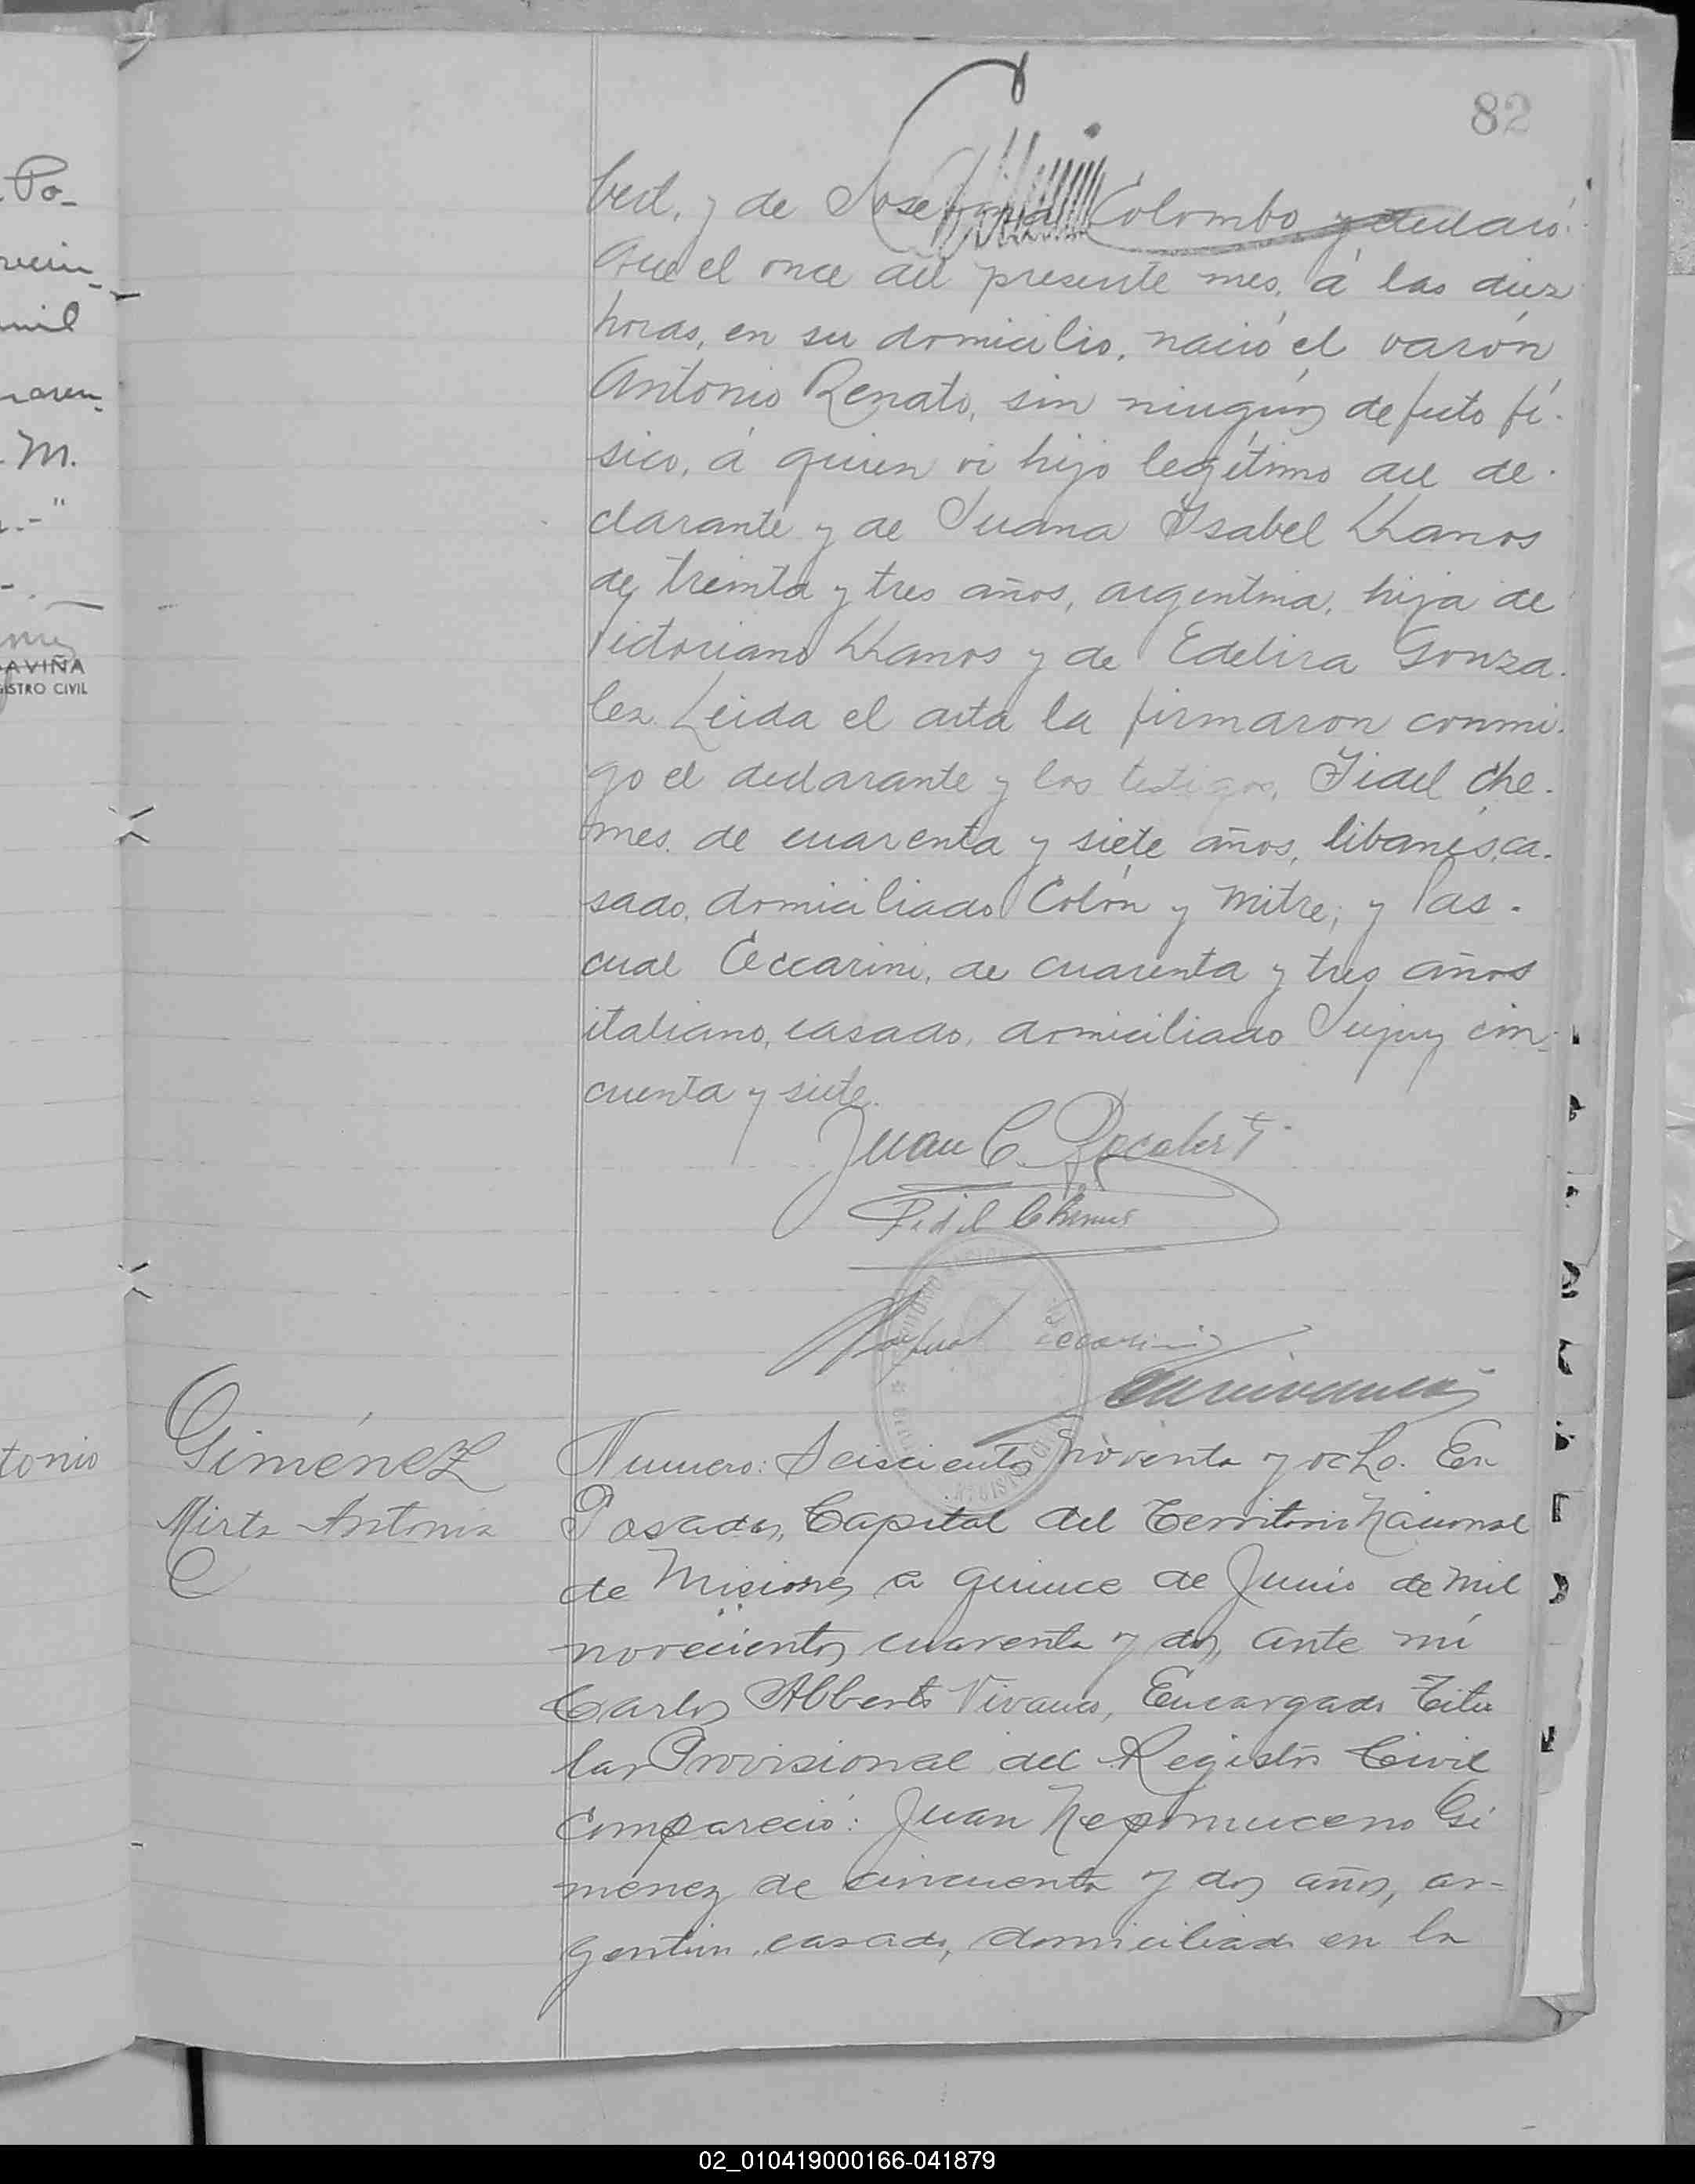 82
Po-
mil
M.
AVIÑA
ISTRO CIVIL
tonio
bert, y de Josefina Colombo y declaró:
Que el once del presente mes, á las diez
horas, en su domicilio, nació el varón
Antonio Renato, sin ningún defecto fí-
sico, á quien vi hijo legítimo del de-
clarante y de Juana Ysabel Llanos
de treinta y tres años, argentina, hija de
Victoriano Llanos y de Edelira Gonza-
lez. Leida el acta la firmaron conmi-
go el declarante y los testigos, Fidel Che-
mes, de cuarenta y siete años, libanés, ca-
sado, domiciliado Colón y Mitre; y Pas-
cual Ceccarini, de cuarenta y tres años
italiano, casado, domiciliado Jujuy cin-
cuenta y siete.
Juan C. Rocabert
Fidel Chemes
Pascual Ceccarini
Giménez
Mirta Antonia
Numero: Seiscientos noventa y ocho. En
Posadas, Capital del Territorio Nacional
de Misiones a quince de Junio de mil
novecientos cuarenta y dos, ante mí
Carlos Alberto Vivanco, Encargado Titu
lar Provisional del Registro Civil
Compareció: Juan Nepomuceno Gi
menez de cincuenta y dos años, ar-
gentino, casado, domiciliado en la
02_010419000166-041879